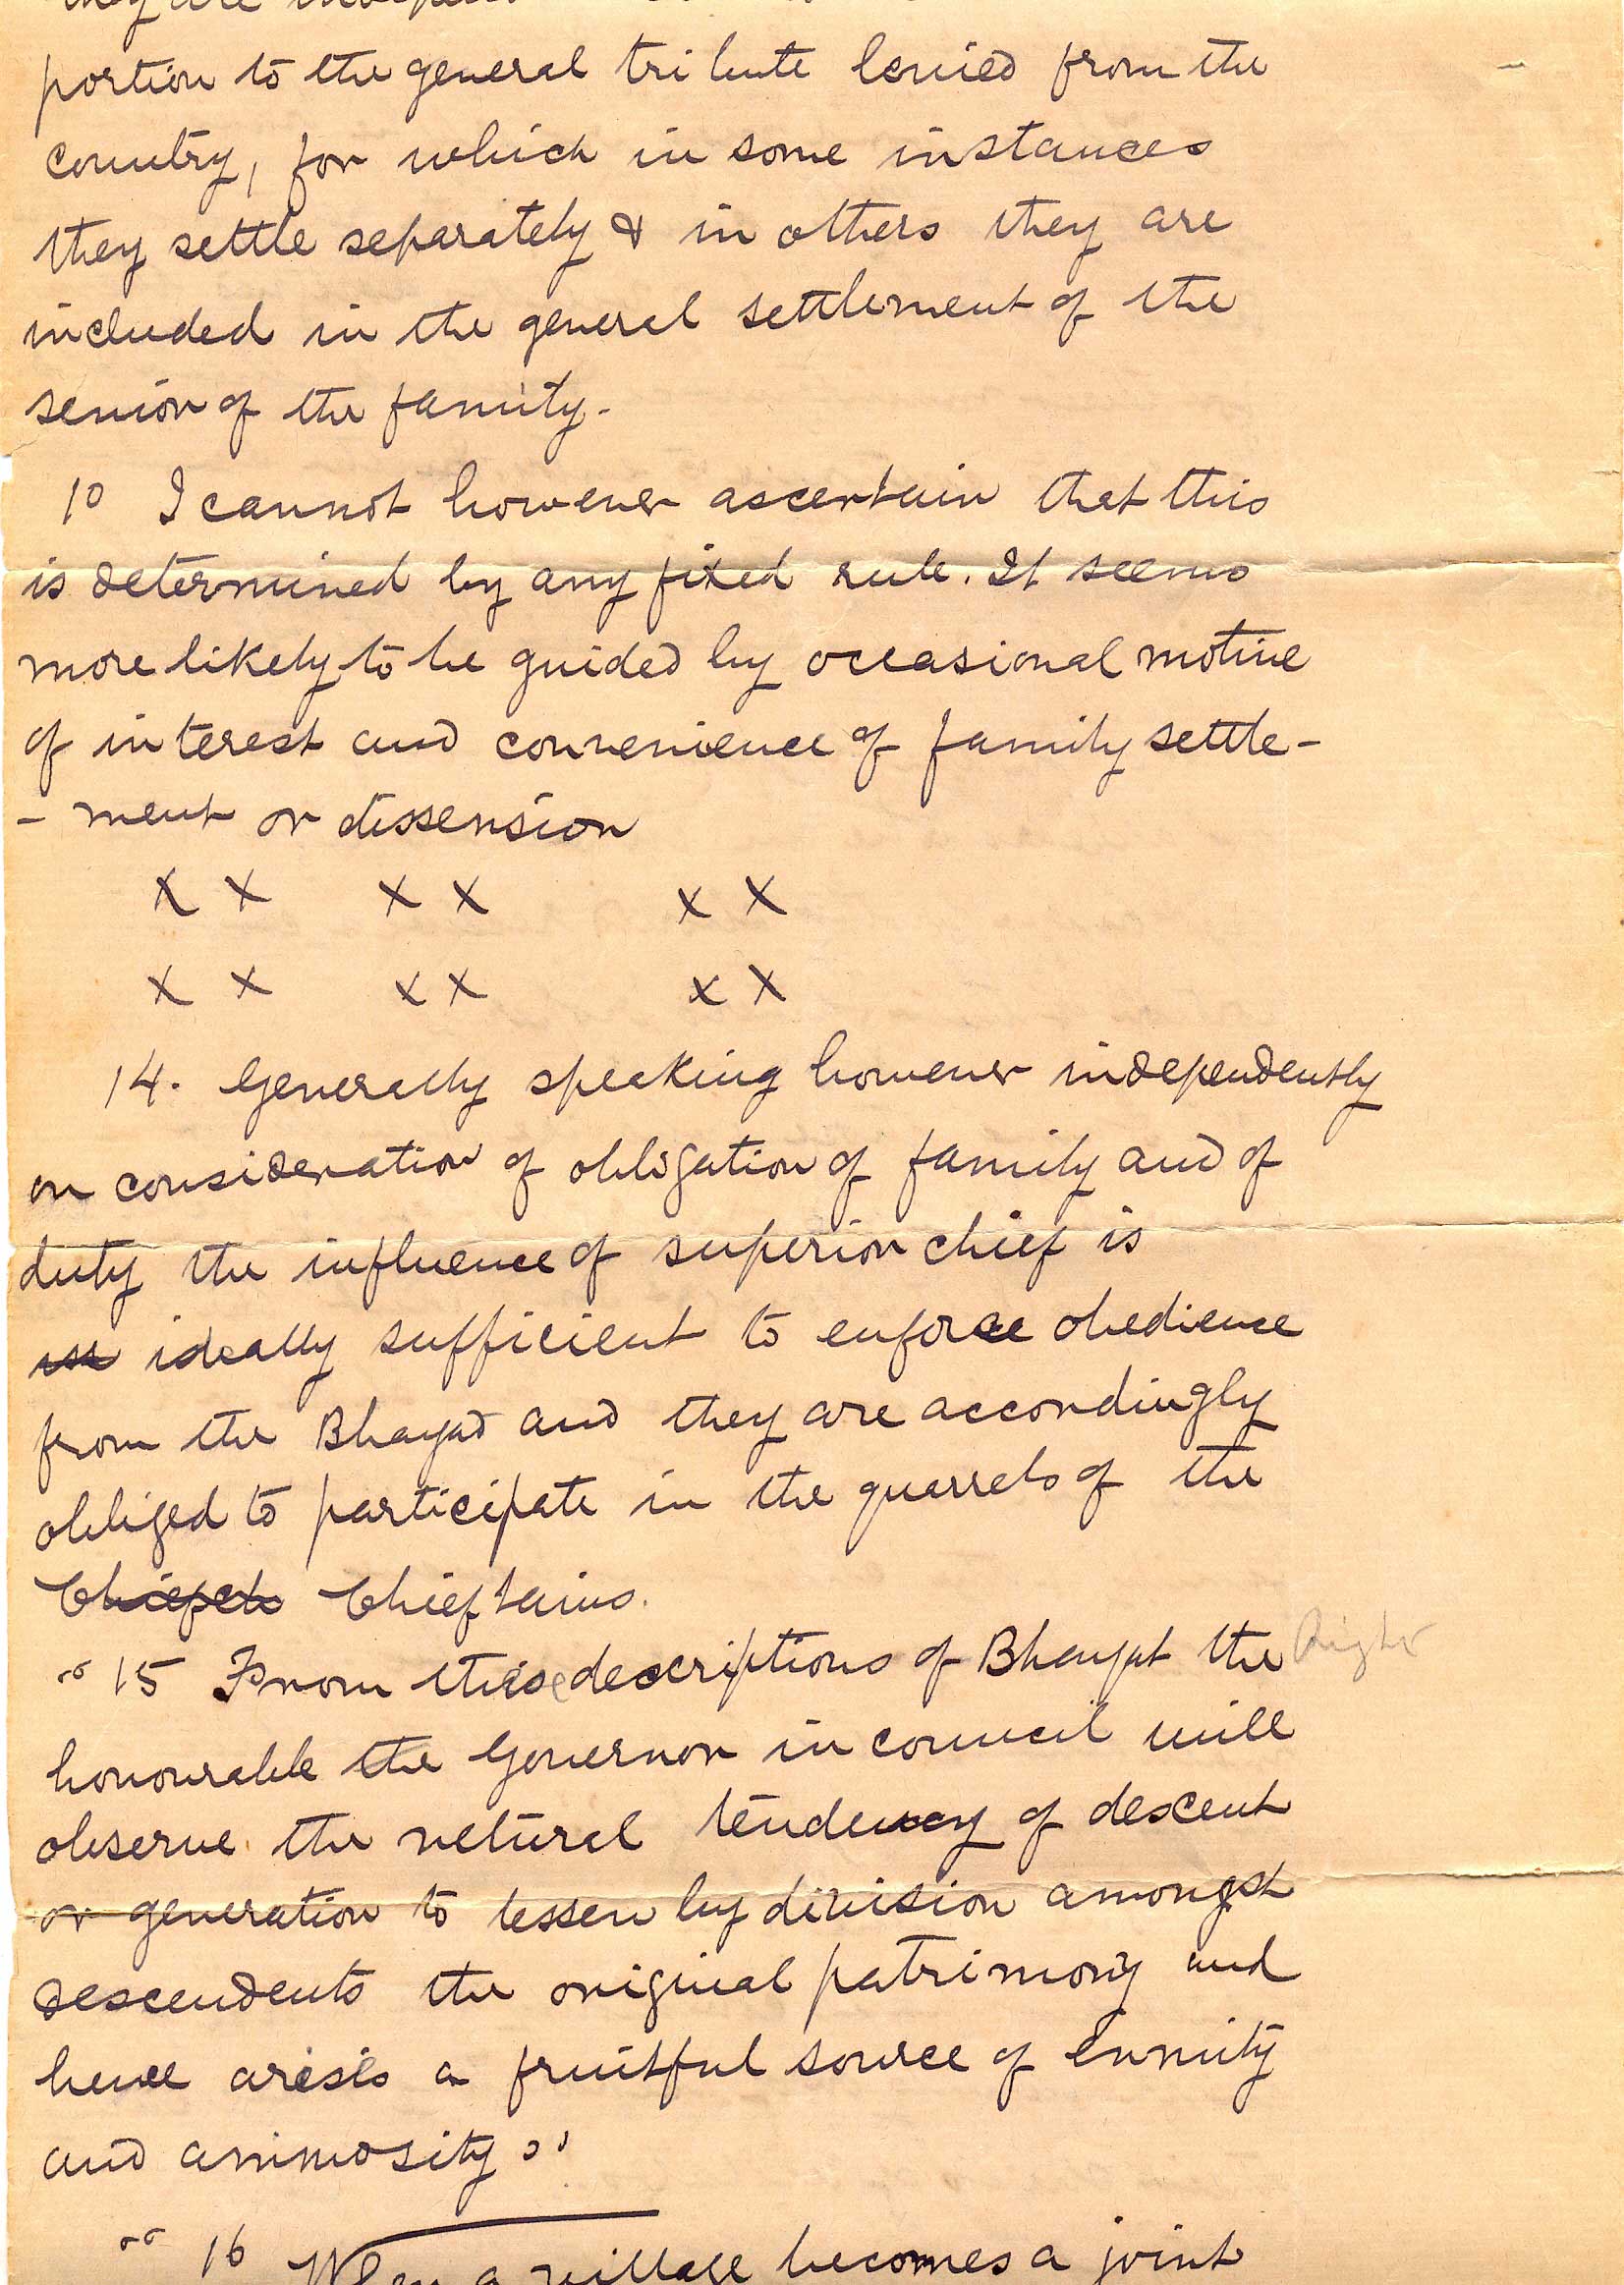 they are
portion to the general tribute levied from the
country, for which in some instances
they settle separately & in others they are
included in the general settlement of the
senior of the family.
10 I cannot however ascertain that this
is determined by any fixed rule. It seems
more likely to be guided by occasional motive
of interest and convenience of family settle-
- ment or dissension
x x x x x x
x x x x x x
14. Generally speaking however independently
on consideration of obligation of family and of
duty the influence of superior chief is
ideally sufficient to enforce obedience
from the Bhayad and they are accordingly
obliged to participate in the quarrels of the
Chieftains.
"15 From these descriptions of Bhayat the Right
honourable the Governor in council will
observe the natural tendency of descent
or generation to lessen by division amongst
descendents the original patrimony and
hence arises a fruitful source of Enmity
and animosity"
" 16 When a village becomes a joint